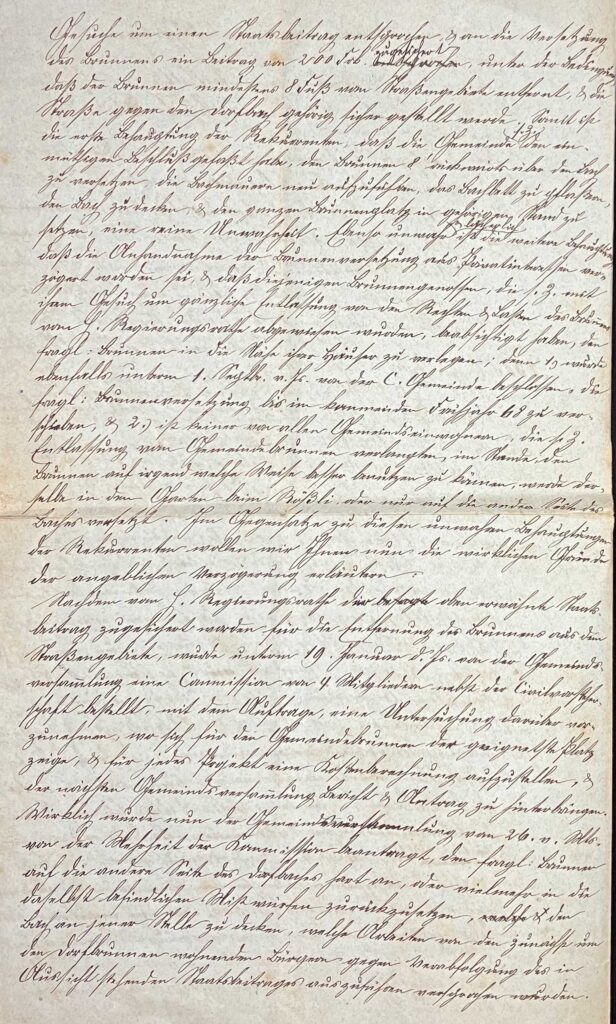 Gesuche um einen Staatsbeitrag entsprochen, & an die Versetzung
des Brunnens ein Beitrag von 200 Frk. zugesichert, unter der Bedingung
daß der Brunnen mindestens 8 Fuß vom Straßengebiete entfernt, & die
Straße gegen den Dorfbach gehörig sicher gestellt werde. Somit ist
die erste Behauptung der Rekurrenten, daß die Gemeinde den ein-
müthigen Beschluß gefaßt habe, den Brunnen 8' rückwärts über den Bach
zu versetzen, die Bachmauern neu aufzuführen, das Bachbett zu pflastern,
den Bach zu decken, & den ganzen Brunnenplatz in gehörigen Stand zu
setzen, eine reine Unwahrheit. Ebenso unwahr ist die weitere Behauptung
daß die Anhandnahme der Brunnenversetzung aus Privatinteressen ver-
zögert worden sei, & daß diejenigen Brunnengenossen, die s. Z. mit
ihrem Gesuch um gänzliche Entlassung von den Rechten & Lasten des Brunnens
vom h. Regierungsrathe abgewiesen wurden, beabsichtigt haben, den
fragl: Brunnen in die Nähe ihrer Häuser zu verlegen; denn 1) wurde
ebenfalls unterm 1. Septbr. v. Js. von der C. Gemeinde beschlossen, die
fragl: Brunnenversetzung bis im kommenden Frühjahr 68 zu ver-
schieben, & 2.) ist keiner von allen Gemeindseinwohnern, die s. Z.
Entlassung vom Gemeindebrunnen verlangten, im Stande, den
Brunnen auf irgend welche Weise besser benutzen zu können, werde der-
selbe in den Garten beim Rößli oder nur auf die andere Seite des
Baches versetzt. Im Gegensatze zu diesen unwahren Behauptungen
der Rekurrenten wollen wir Ihnen nun die wirklichen Gründe
der angeblichen Verzögerung erläutern:
Nachdem vom h. Regierungsrathe der besagte oben erwähnte Staats-
beitrag zugesichert worden für die Entfernung des Brunnens aus dem
Straßengebiete, wurde unterm 19. Januar d. Js. von der Gemeinds-
versammlung eine Commission von 4 Mitgliedern nebst der Civilvorsteher-
schaft bestellt, mit dem Auftrage, eine Untersuchung darüber vor-
zunehmen, wo sich für den Gemeindebrunnen der geeignetste Platz
zeige, & für jedes Projekt eine Kostenberechnung aufzustellen, &
der nächsten Gemeindsversammlung Bericht & Antrag zu hinterbringen.
Wirklich wurde nun der Gemeindsversammlung vom 26. v. Mts.
von der Mehrheit der Kommission beantragt, den fragl: Brunnen
auf die andere Seite des Dorfbaches hart an, oder vielmehr in die
daselbst befindlichen Mistwürfen zurückzusetzen, & den
Bach an jener Stelle zu decken, welche Arbeiten von den zunächst um
den Dorfbrunnen wohnenden Bürgern gegen Verabfolgung des in
Aussicht stehenden Staatsbeitrages auszuführen versprochen wurden.